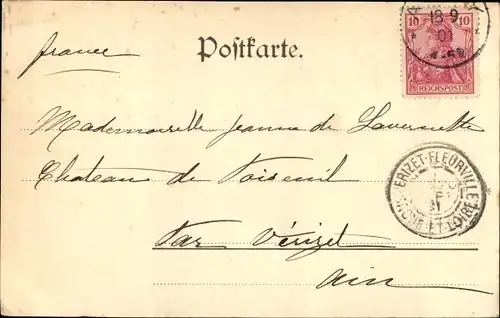 10 10
18 9
01
4-5N
REICHSPOST
france
Postkarte.
Mademoiselle Jeanne de Lavernette
Chateau de
ERIZET-FLEURVILLE
ET-LOIRE
Par Vérizet
Ain